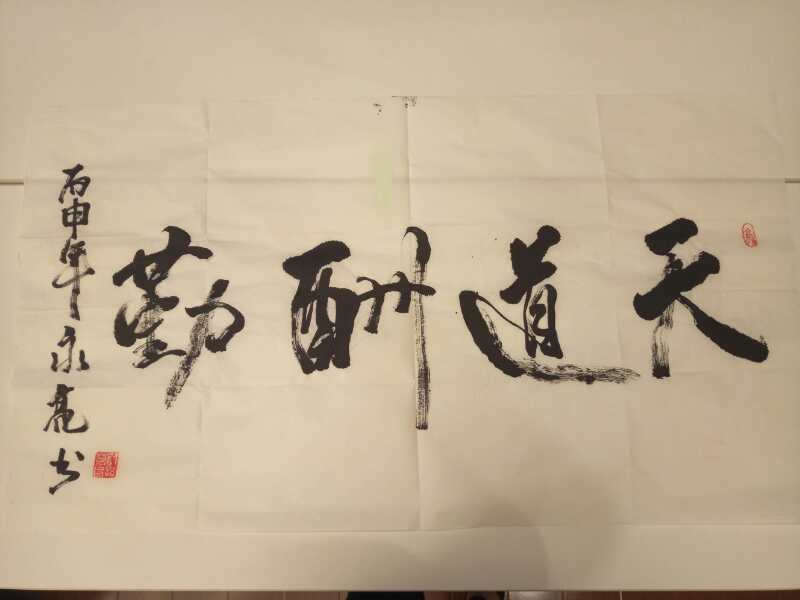 天道酬勤
丙申年永亮书